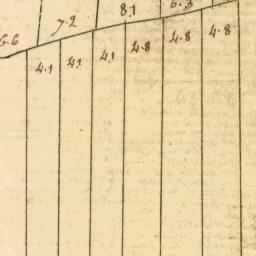 6.6 7.2 8.1 6.3
4.1 4.1 4.1 4.8 4.8 4.8